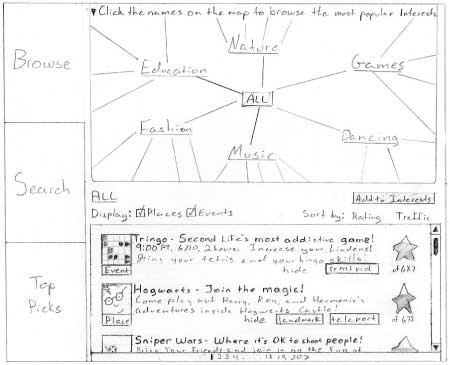 Browse
Search
Top
Picks
▼Click the names on the map to browse the most popular Interests
Nature
Education
Games
ALL
Fashion
Dancing
Music
ALL
Add to Interests
Display: ☑Places ☑Events
Sort by: Rating Traffic
Tringo - Second Life's most addictive game!
9:00 PT, 6/10, 2 hours. Increase your Lindens!
Bring your tetris and your bingo skills!
Event
hide remind
of 687
Hogwarts - Join the magic!
Come play out Harry, Ron, and Hermonie's
adventures inside Hogwarts Castle!
Place
hide landmark teleport
Sniper Wars - Where it's OK to shoot people!
Bring Your Friends and join in on the fun of
1 2 3 4 ... 18 19 20 >